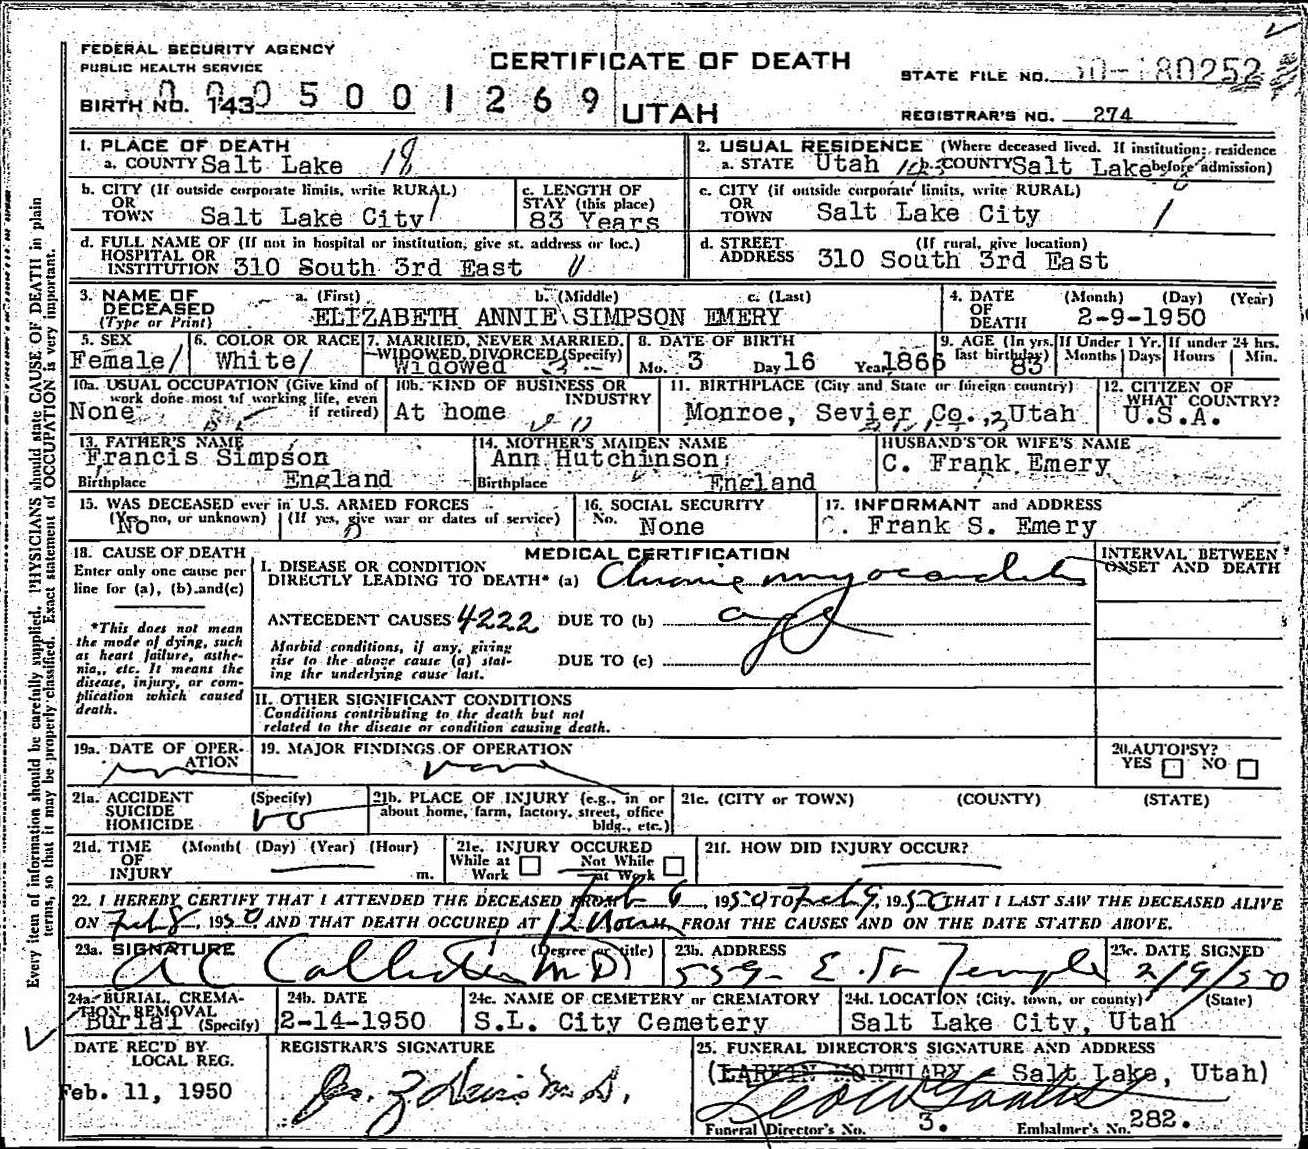 FEDERAL SECURITY AGENCY
PUBLIC HEALTH SERVICE
CERTIFICATE OF DEATH
UTAH
STATE FILE NO. 50-180252
BIRTH NO. 143 0 5 0 0 1 2 6 9
REGISTRAR'S NO. 274
Every item of information should be carefully supplied. PHYSICIANS should state CAUSE OF DEATH in plain
terms, so that it may be properly classified. Exact statement of OCCUPATION is very important.
1. PLACE OF DEATH
a. COUNTY Salt Lake 18
2. USUAL RESIDENCE (Where deceased lived. If institution: residence
a. STATE Utah COUNTY Salt Lake before admission)
b. CITY (If outside corporate limits, write RURAL)
OR
TOWN Salt Lake City
c. LENGTH OF
STAY (this place)
83 Years
c. CITY (if outside corporate limits, write RURAL)
OR
TOWN Salt Lake City
d. FULL NAME OF (If not in hospital or institution, give st. address or loc.)
HOSPITAL OR
INSTITUTION 310 South 3rd East
d. STREET (If rural, give location)
ADDRESS 310 South 3rd East
3. NAME OF a. (First) b. (Middle) c. (Last)
DECEASED
(Type or Print) ELIZABETH ANNIE SIMPSON EMERY
4. DATE (Month) (Day) (Year)
OF
DEATH 2-9-1950
5. SEX
Female
6. COLOR OR RACE
White
7. MARRIED, NEVER MARRIED,
WIDOWED, DIVORCED (Specify)
Widowed
8. DATE OF BIRTH
Mo. 3 Day 16 Year 1866
9. AGE (In yrs. If Under 1 Yr. If under 24 hrs.
last birthday) Months Days Hours Min.
83
10a. USUAL OCCUPATION (Give kind of
work done most of working life, even
if retired)
None
10b. KIND OF BUSINESS OR
INDUSTRY
At home
11. BIRTHPLACE (City and State or foreign country)
Monroe, Sevier Co., Utah
12. CITIZEN OF
WHAT COUNTRY?
U.S.A.
13. FATHER'S NAME
Francis Simpson
Birthplace England
14. MOTHER'S MAIDEN NAME
Ann Hutchinson
Birthplace England
HUSBAND'S OR WIFE'S NAME
C. Frank Emery
15. WAS DECEASED ever in U.S. ARMED FORCES
(Yes, no, or unknown) (If yes, give war or dates of service)
No
16. SOCIAL SECURITY
No. None
17. INFORMANT and ADDRESS
C. Frank S. Emery
18. CAUSE OF DEATH
Enter only one cause per
line for (a), (b) and (c)
*This does not mean
the mode of dying, such
as heart failure, asthe-
nia, etc. It means the
disease, injury, or com-
plication which caused
death.
MEDICAL CERTIFICATION
I. DISEASE OR CONDITION
DIRECTLY LEADING TO DEATH* (a) Chronic myocarditis
ANTECEDENT CAUSES 4222 DUE TO (b) age
Morbid conditions, if any, giving
rise to the above cause (a) stat- DUE TO (c)
ing the underlying cause last.
INTERVAL BETWEEN
ONSET AND DEATH
II. OTHER SIGNIFICANT CONDITIONS
Conditions contributing to the death but not
related to the disease or condition causing death.
19a. DATE OF OPER-
ATION
19. MAJOR FINDINGS OF OPERATION
20. AUTOPSY?
YES NO
21a. ACCIDENT (Specify)
SUICIDE
HOMICIDE no
21b. PLACE OF INJURY (e.g., in or
about home, farm, factory, street, office
bldg., etc.)
21c. (CITY or TOWN) (COUNTY) (STATE)
21d. TIME (Month) (Day) (Year) (Hour)
OF
INJURY m.
21e. INJURY OCCURED
While at Not While
Work at Work
21f. HOW DID INJURY OCCUR?
22. I HEREBY CERTIFY THAT I ATTENDED THE DECEASED FROM Feb 6, 1950 TO Feb 9, 1950 THAT I LAST SAW THE DECEASED ALIVE
ON Feb 8, 1950, AND THAT DEATH OCCURED AT 12 Noon FROM THE CAUSES AND ON THE DATE STATED ABOVE.
23a. SIGNATURE (Degree or title)
A C Callister M D
23b. ADDRESS
559 E. So Temple
23c. DATE SIGNED
2/9/50
24a. BURIAL, CREMA-
TION, REMOVAL
Burial (Specify)
24b. DATE
2-14-1950
24c. NAME OF CEMETERY or CREMATORY
S.L. City Cemetery
24d. LOCATION (City, town, or county) (State)
Salt Lake City, Utah
DATE REC'D BY
LOCAL REG.
Feb. 11, 1950
REGISTRAR'S SIGNATURE
25. FUNERAL DIRECTOR'S SIGNATURE AND ADDRESS
(LARKIN MORTUARY - Salt Lake, Utah)
Funeral Director's No. 3. Embalmer's No. 282.